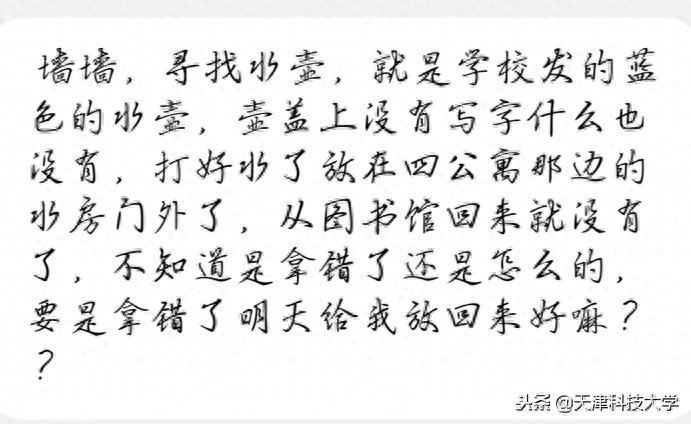 墙墙，寻找水壶，就是学校发的蓝
色的水壶，壶盖上没有写字什么也
没有，打好水了放在四公寓那边的
水房门外了，从图书馆回来就没有
了，不知道是拿错了还是怎么的，
要是拿错了明天给我放回来好嘛？
？
头条 @天津科技大学